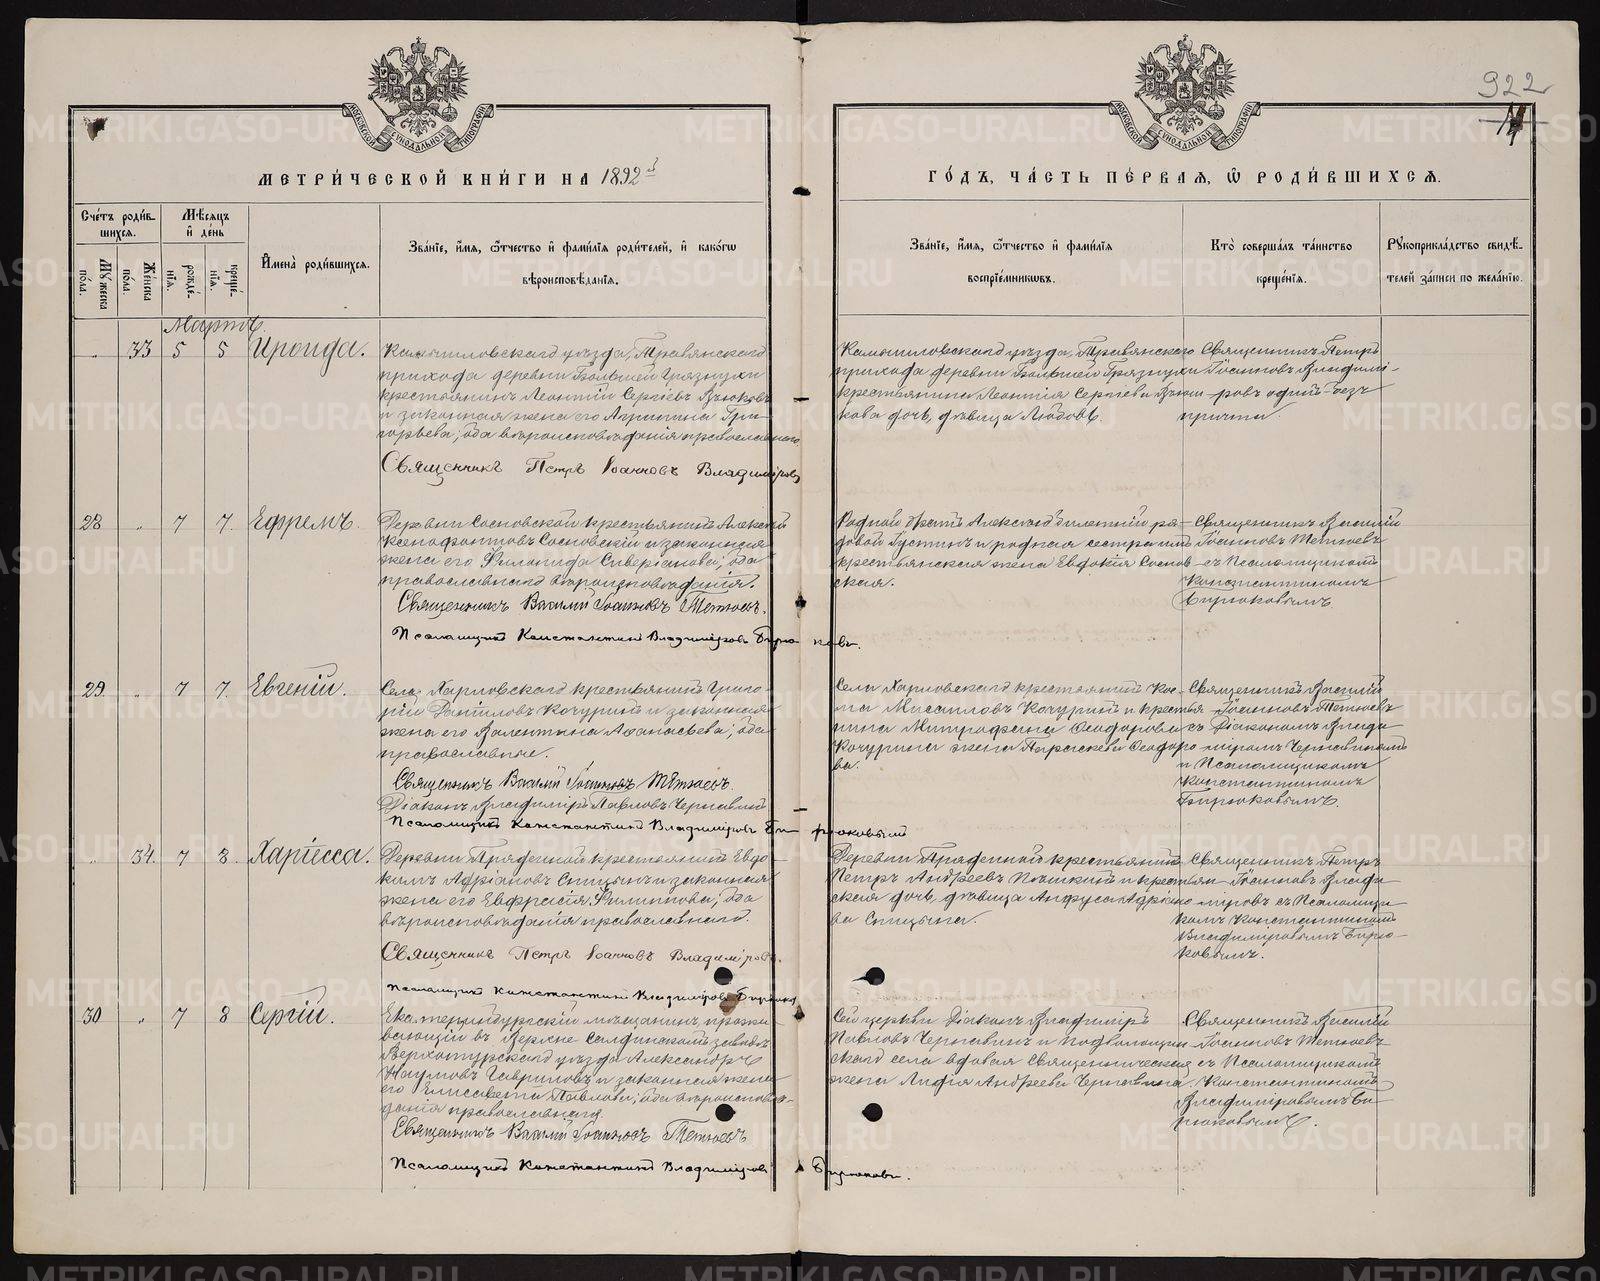 922
МЕТРИ́ЧЕСКОЙ КНИ́ГИ НА 1892й
ГО́ДЪ, ЧА́СТЬ ПЕ́РВАЯ, Ѡ РОДИ́ВШИХСЯ.
Сче́тъ роди́в-
шихся.
Мѣ́сяцъ
и҆ де́нь
Му́жеска
по́ла.
Же́нска
по́ла.
рожде́-
нїя.
креще́-
нїя.
И҆мена̀ роди́вшихся.
Зва́нїе, и҆́мя, ѻ҆́тчество и҆ фами́лїя роди́телей, и҆ како́гѡ
вѣроисповѣ́данїя.
Зва́нїе, и҆́мя, ѻ҆́тчество и҆ фами́лїя
воспрїе́мникѡвъ.
Кто̀ соверша́лъ та́инство
креще́нїя.
Рꙋкоприкла́дство свидѣ́-
телей за́писи по жела́нїю.
Мартъ.
33 5 5 Ироида.
Камышловскаго уѣзда, Травянскаго
прихода деревни Большей Грязнухи
крестьянинъ Леонтій Сергіевъ
и законная жена его Агрипина Гри-
горьева; оба вѣроисповѣданія православнаго
Священникъ Петръ Іоанновъ Владиміровъ
Камышловскаго уѣзда, Травянскаго
прихода деревни Большей Грязнухи
крестьянина Леонтія Сергіева
кова дочь, дѣвица Любовь.
Священникъ Петръ
Іоанновъ Владимі-
ровъ одинъ безъ
причта
28 7 7 Ефремъ.
Деревни Сосновской крестьянинъ Алексѣй
Ксенофонтовъ Сосновскій и законная
жена его Филонида Сиверіанова; оба
православнаго вѣроисповѣданія.
Священникъ Василій Іоанновъ Тетюевъ.
Псаломщикъ Константинъ Владиміровъ Бирюковъ.
Родной братъ Алексѣя билетный ря-
довой Густинъ и родная сестра имъ
крестьянская жена Евдокія Соснов-
ская.
Священникъ Василій
Іоанновъ Тетюевъ
съ Псаломщикомъ
Константиномъ
Бирюковымъ.
29 7 7 Евгеній.
Села Харловскаго крестьянинъ Григо-
рій Даниловъ Кочуринъ и законная
жена его Валентина Аѳанасьева; оба
православные.
Священникъ Василій Іоанновъ Тетюевъ.
Діаконъ Владиміръ Павловъ Чернавинъ
Псаломщикъ Константинъ Владиміровъ Бирюковъ
Села Харловскаго крестьянинъ Кос-
ма Мисаиловъ Кочуринъ и крестья-
нина Митрофана Ѳеодорова
Кочурина жена Параскева Ѳеодоро-
ва.
Священникъ Василій
Іоанновъ Тетюевъ
съ Діакономъ Влади-
міромъ Чернавинымъ
и Псаломщикомъ
Константиномъ
Бирюковымъ.
34 7 8 Харіесса.
Деревни Пряденной крестьянинъ Евдо-
кимъ Адріановъ Спицынъ и законная
жена его Евфрасія Филипова; оба
вѣроисповѣданія православнаго.
Священникъ Петръ Іоанновъ Владиміровъ.
Псаломщикъ Константинъ Владиміровъ Бирюковъ
Деревни Пряденной крестьянинъ
Петръ Андреевъ и крестьян-
ская дочь, дѣвица Анфуса Адріано-
ва Спицына.
Священникъ Петръ
Іоанновъ Влади-
міровъ съ Псаломщи-
комъ Константиномъ
Владиміровымъ Бирю-
ковымъ.
30 7 8 Сергій.
Екатеринбургскій мѣщанинъ, прожи-
вающій въ Верхне-Салдинскомъ заводѣ
Верхотурскаго уѣзда Александръ
Наумовъ Гавриловъ и законная жена
его Елисавета Павлова; оба вѣроисповѣ-
данія православнаго.
Священникъ Василій Іоанновъ Тетюевъ
Псаломщикъ Константинъ Владиміровъ Бирюковъ.
Сей церкви Діаконъ Владиміръ
Павловъ Чернавинъ и
скаго села вдовая священническая
жена Лидія Андреева Чернавина.
Священникъ Василій
Іоанновъ Тетюевъ
съ Псаломщикомъ
Константиномъ
Владиміровымъ Би-
рюковымъ.